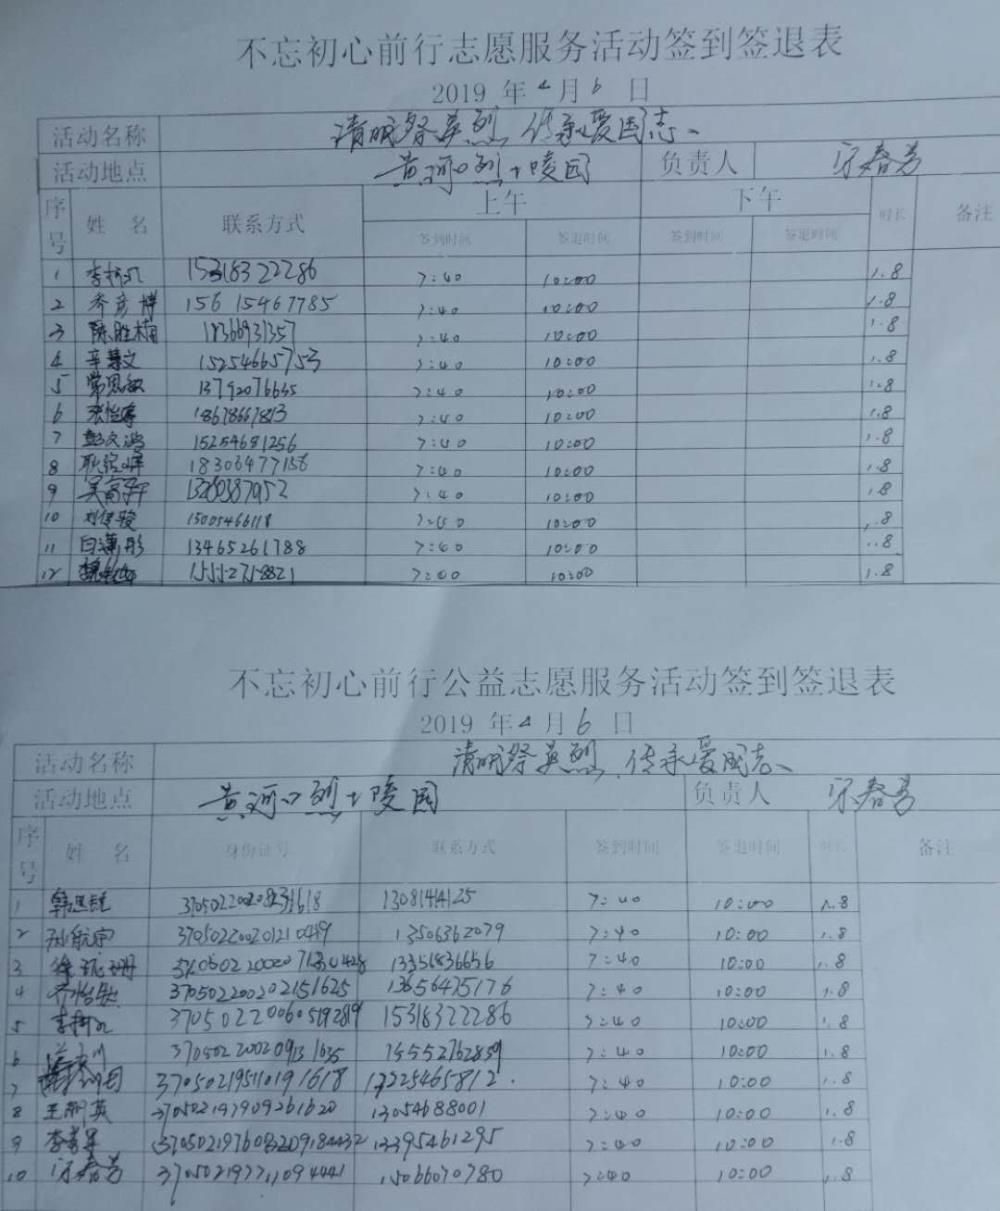 不忘初心前行志愿服务活动签到签退表
2019 年 4 月 6 日
活动名称 清明祭英烈、传承爱国志、
活动地点 黄河口烈士陵园 负责人 宋春芳
序号 姓 名 联系方式 上午 下午 时长 备注
签到时间 签退时间 签到时间 签退时间
1 15318322286 7:40 10:00 1.8
2 齐彦博 156 15467785 7:40 10:00 1.8
3 陈胜楠 18366931357 7:40 10:00 1.8
4 辛慧文 15254665753 7:40 10:00 1.8
5 常思敏 13792076635 7:40 10:00 1.8
6 7:40 10:00 1.8
7 彭文鸿 15254681256 7:40 10:00 1.8
8 18306477156 7:40 10:00 1.8
9 7:40 10:00 1.8
10 刘俊骏 15005466118 7:40 10:00 1.8
11 白潇彤 13465261788 7:40 10:00 1.8
12 15552758821 7:40 10:00 1.8
不忘初心前行公益志愿服务活动签到签退表
2019 年 4 月 6 日
活动名称 清明祭英烈、传承爱国志、
活动地点 黄河口烈士陵园 负责人 宋春芳
序号 姓 名 身份证号 联系方式 签到时间 签退时间 时长 备注
1 韩思锐 7:40 10:00 1.8
2 孙航宇 13506362079 7:40 10:00 1.8
3 徐珮珊 13351836656 7:40 10:00 1.8
4 齐怡然 370502200202151625 13656475176 7:40 10:00 1.8
5 15318322286 7:40 10:00 1.8
6 370502200209131635 15552762859 7:40 10:00 1.8
7 370502195110191618 13225465812 7:40 10:00 1.8
8 王丽英 370502197909261620 13054688001 7:40 10:00 1.8
9 李秀军 13395461295 7:40 10:00 1.8
10 宋春芳 370502197711094441 15066070780 7:40 10:00 1.8